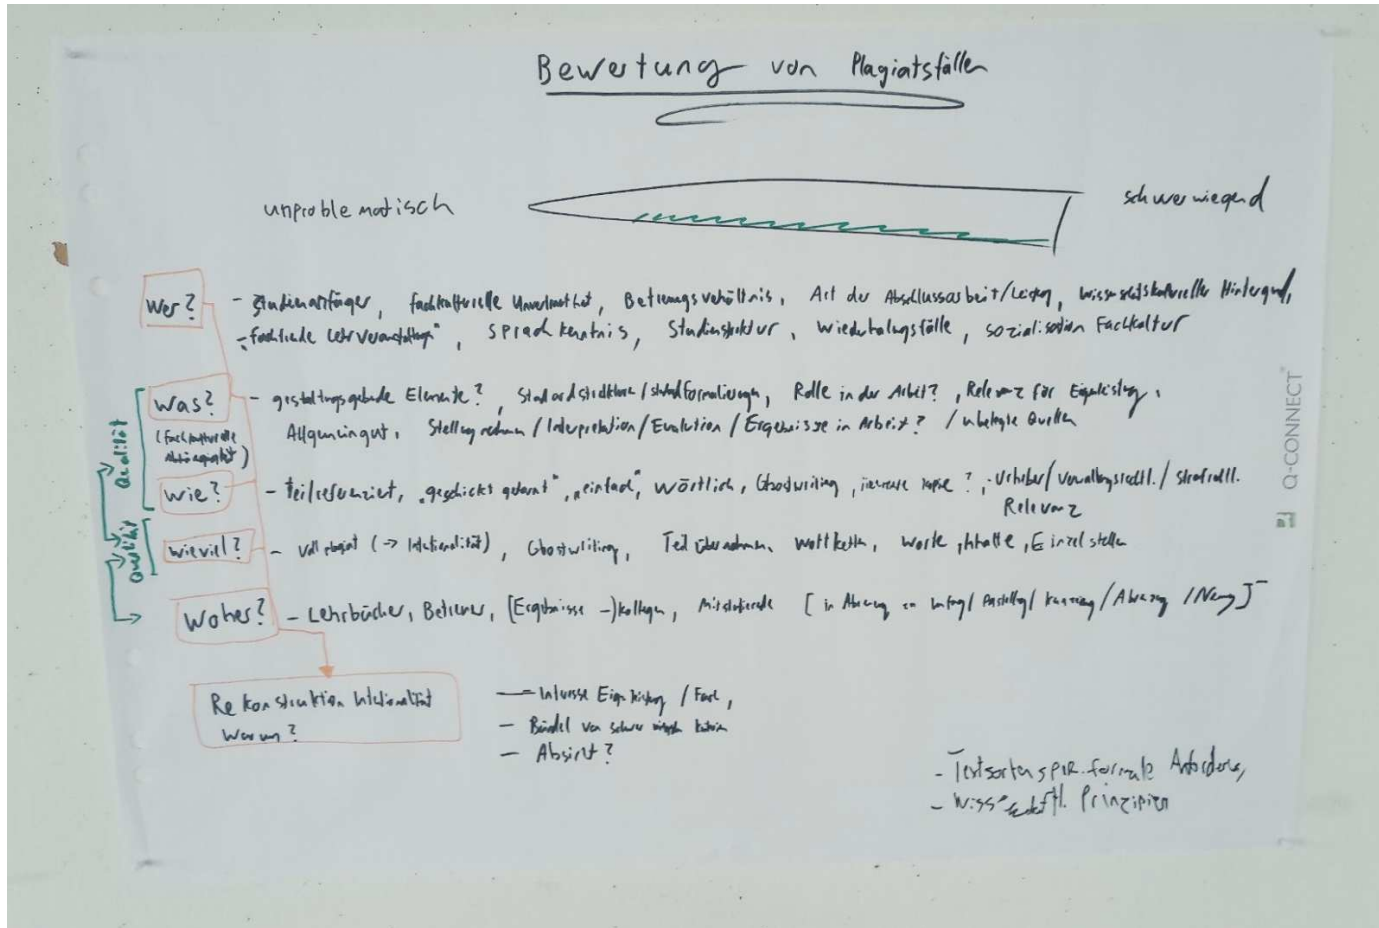 Bewertung von Plagiatsfällen
unproblematisch
schwerwiegend
Wer?
- Studienanfänger, fachkulturelle Unvertrautheit, Betreuungsverhältnis, Art der Abschlussarbeit/Leistung, wissenschaftskultureller Hintergrund,
- fachfremde Lehrveranstaltung", Sprachkenntnis, Studienstruktur, Wiederholungsfälle, Sozialisation Fachkultur
Was?
(Fachkulturelle
Abhängigkeit)
- gestaltungsgebende Elemente?, Standardstruktur / Standardformulierungen, Rolle in der Arbeit?, Relevanz für Eigenleistung,
Allgemeingut, Stellungnahmen / Interpretation / Evaluation / Ergebnisse in Arbeit? / unbelegte Quellen
Qualität
Wie?
- teilreferenziert, „geschickt getarnt", „einfach", wörtlich, Ghostwriting, Urheber/ Verwaltungsrechtl./ strafrechtl.
Relevanz
Quantität
wieviel?
- Vollplagiat (→ Intentionalität), Ghostwriting, Teilübernahmen, Wortketten, Worte, Inhalte, Einzelstellen
Woher?
- Lehrbücher, Betreuer, (Ergebnisse -) Kollegen, Mitstudierende [in
Rekonstruktion Intentionalität
Warum?
- Interesse Eigenleistung / Fach,
- Bündel von
- Absicht?
- Textsortenspez. formale Anforderung,
- Wissenschaftl. Prinzipien
Q-CONNECT